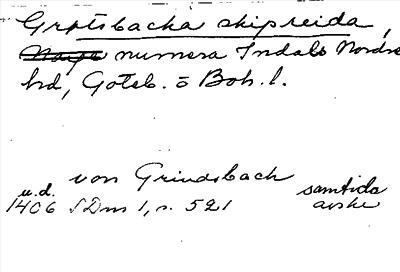 Grotsbacka skipreida,
Norge numera Indals Nordre
hd, Göteb. o Boh. l.
von Grindsbach
u.d. samtida
1406 SDns 1, s. 521 avskr